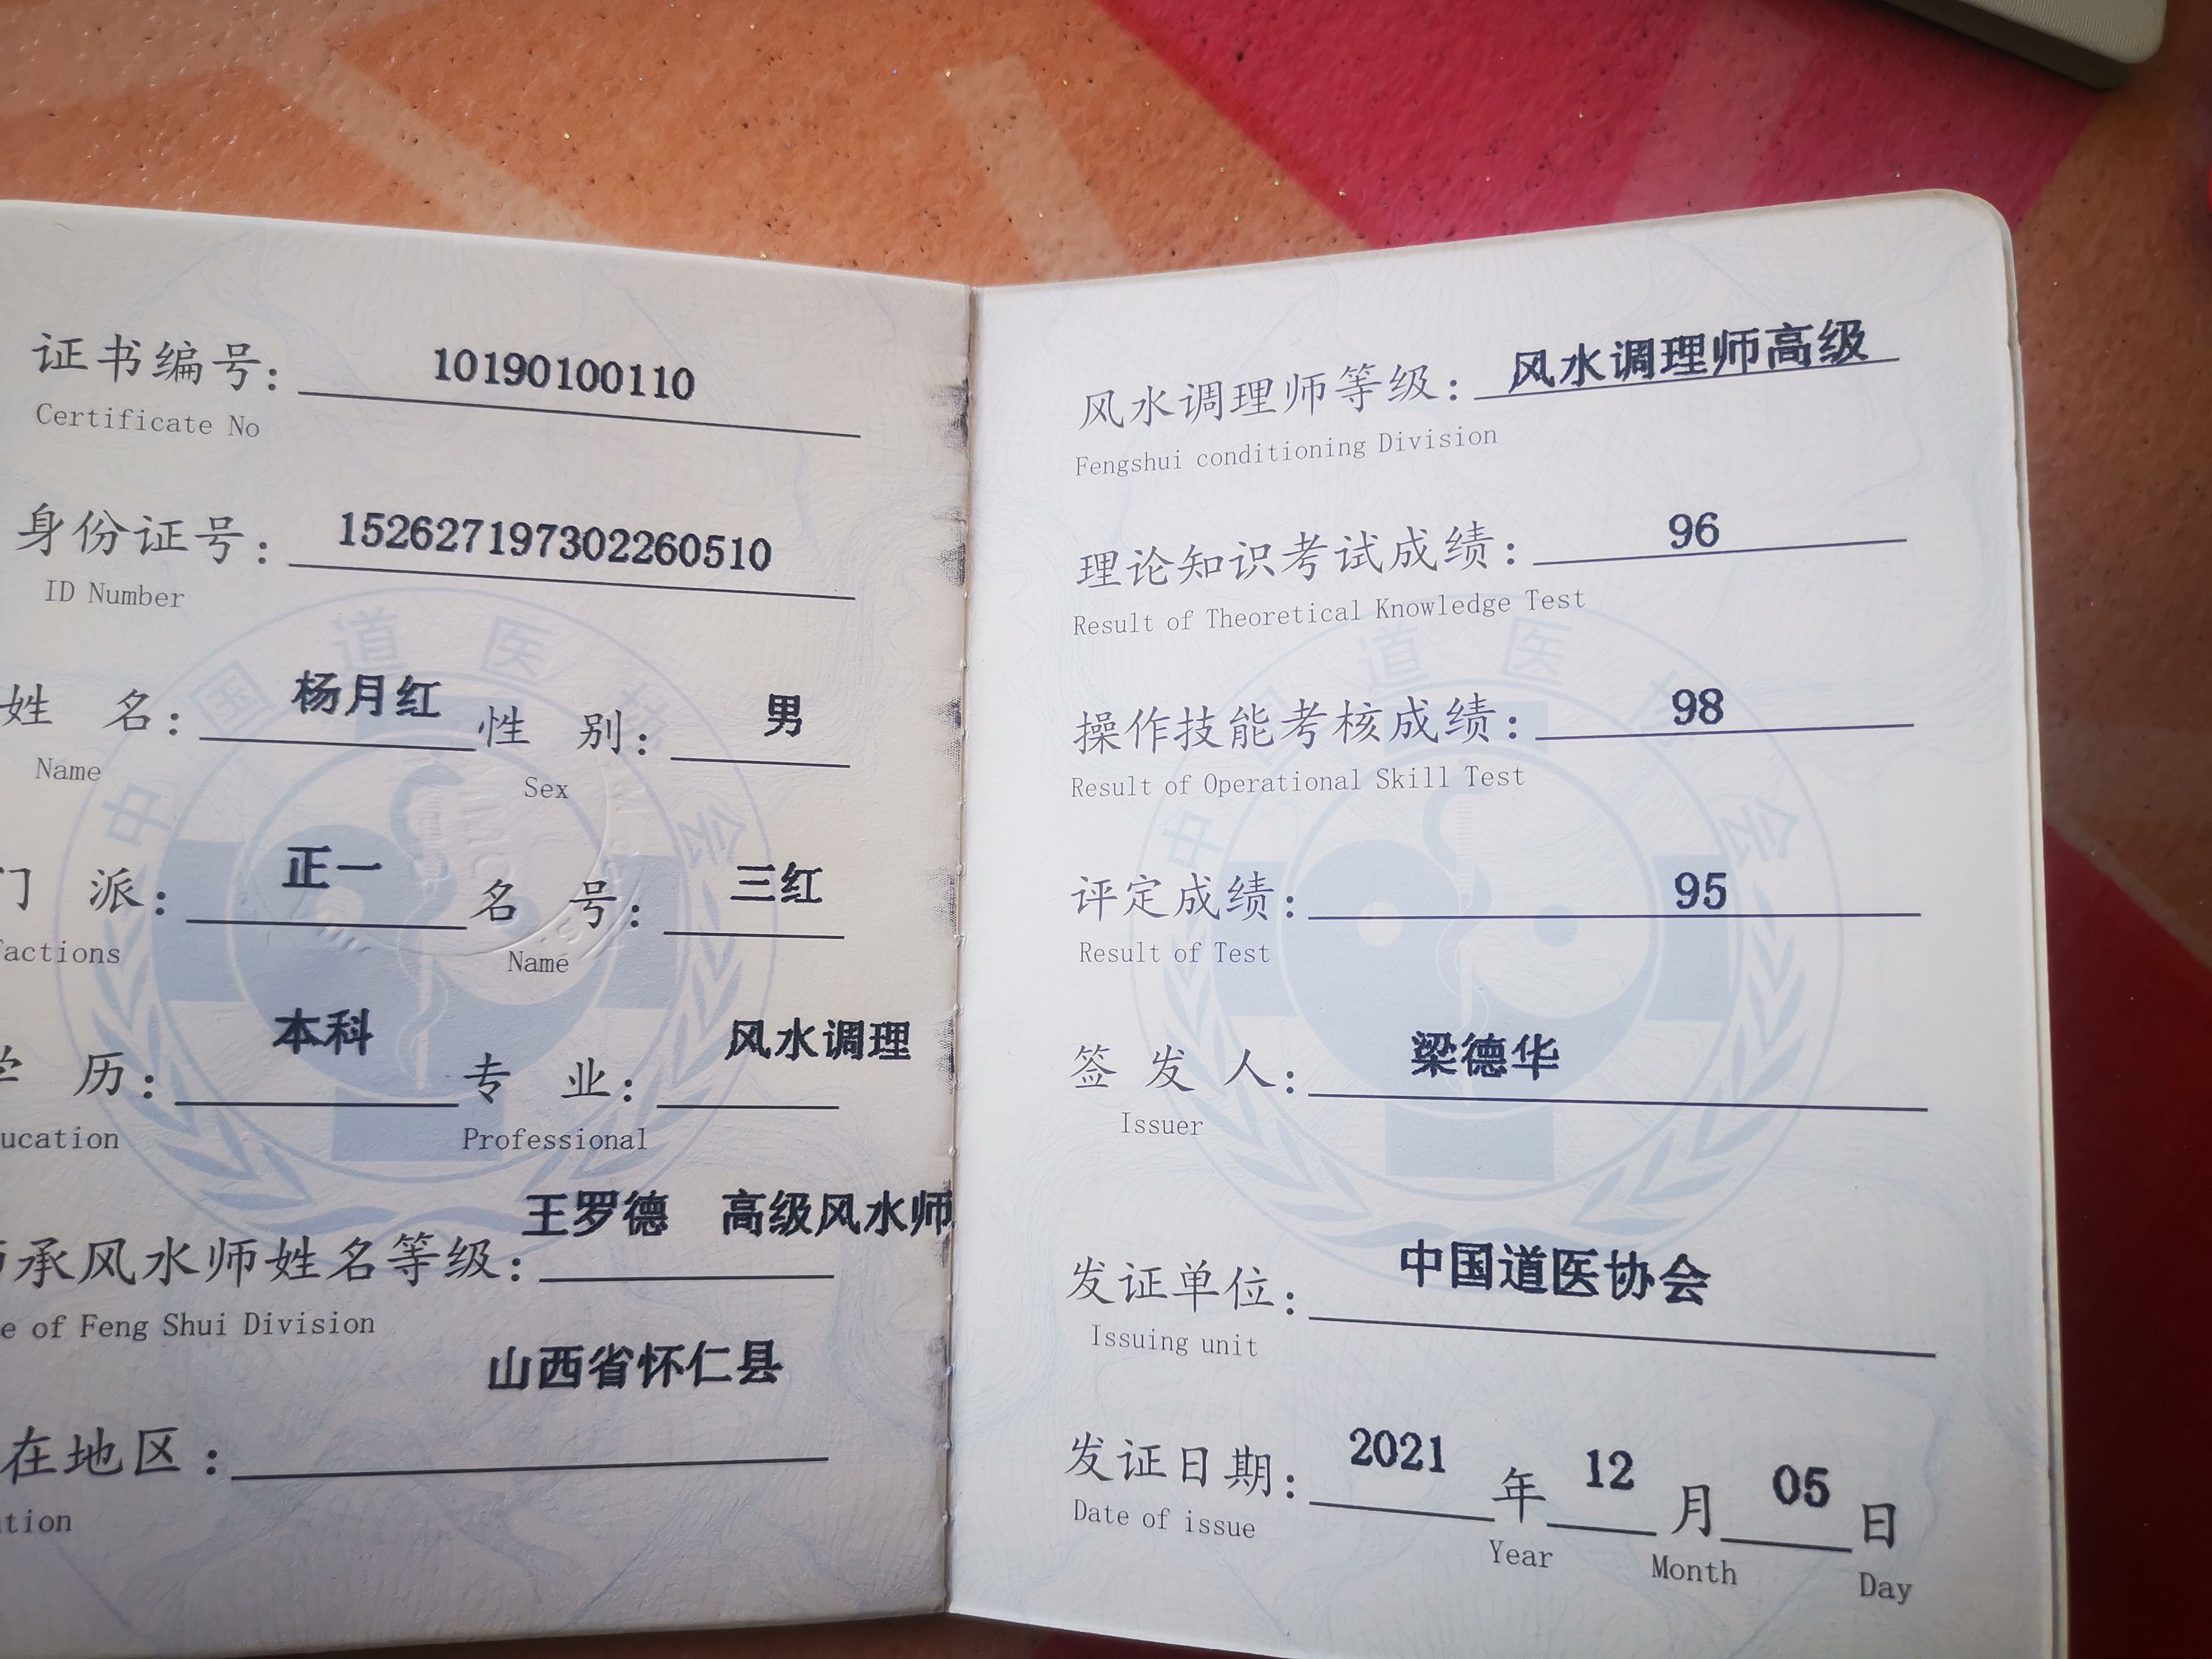 证书编号: 10190100110
Certificate No
身份证号: 152627197302260510
ID Number
姓 名: 杨月红 性 别: 男
Name Sex
门 派: 正一 名 号: 三红
factions Name
学 历: 本科 专 业: 风水调理
ucation Professional
王罗德 高级风水师
承风水师姓名等级:
e of Feng Shui Division
山西省怀仁县
在地区:
ation
中国道医协会
风水调理师等级: 风水调理师高级
Fengshui conditioning Division
理论知识考试成绩: 96
Result of Theoretical Knowledge Test
操作技能考核成绩: 98
Result of Operational Skill Test
评定成绩: 95
Result of Test
签 发 人: 梁德华
Issuer
发证单位: 中国道医协会
Issuing unit
发证日期: 2021 年 12 月 05 日
Date of issue Year Month Day
中国道医协会